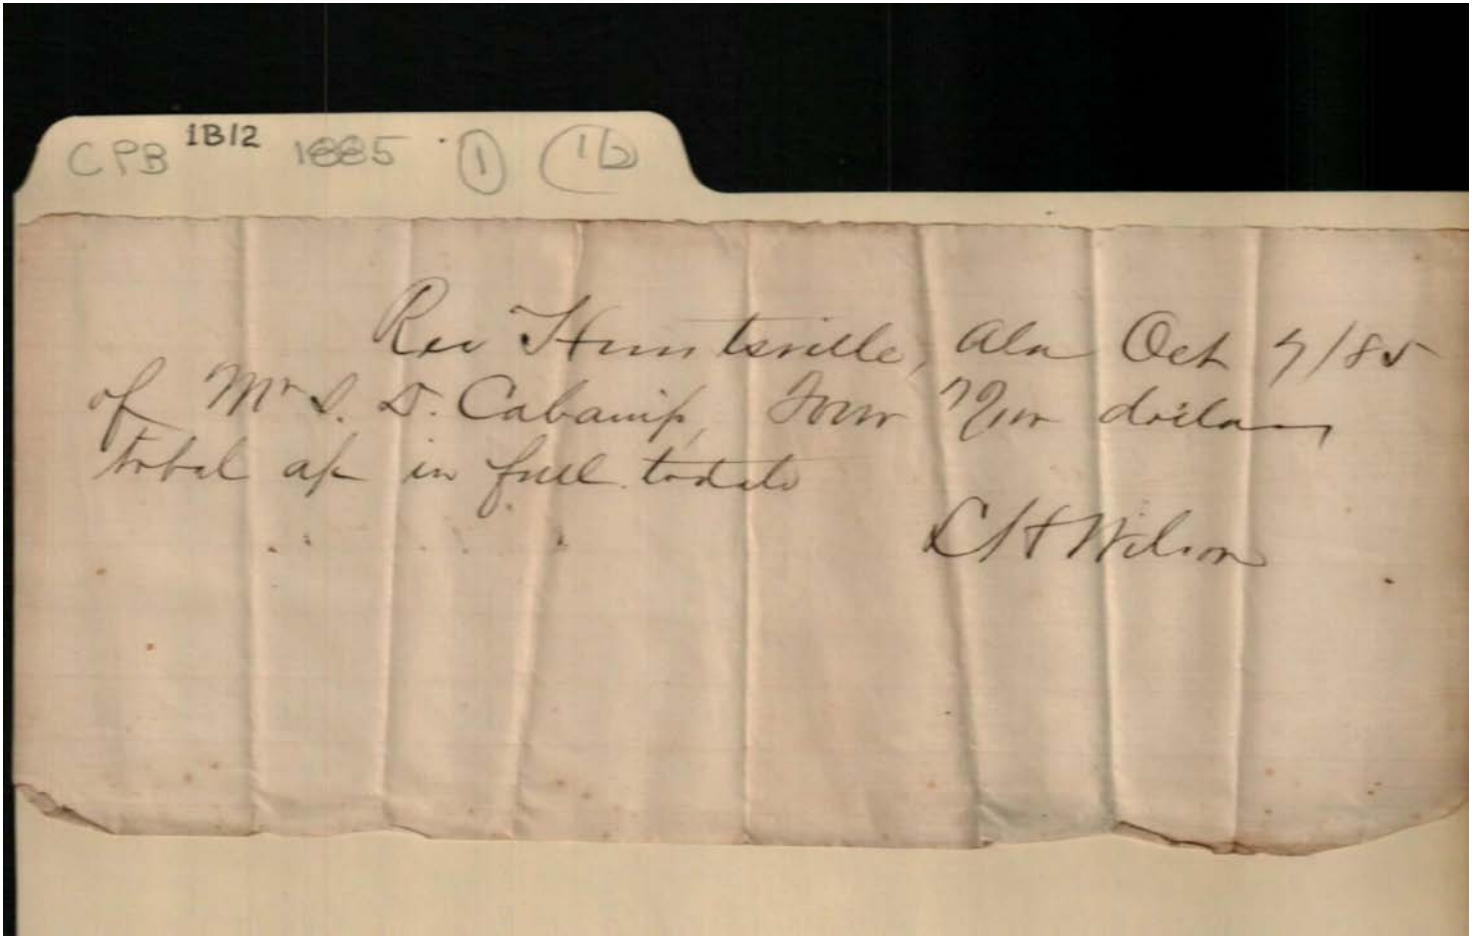 CPB 1B12 1885 1 1b
Rec Huntsville, Ala Oct 7/85
of Mr S. D. Cabaniss, Four dollars
total a/c in full to date
C H Wilson